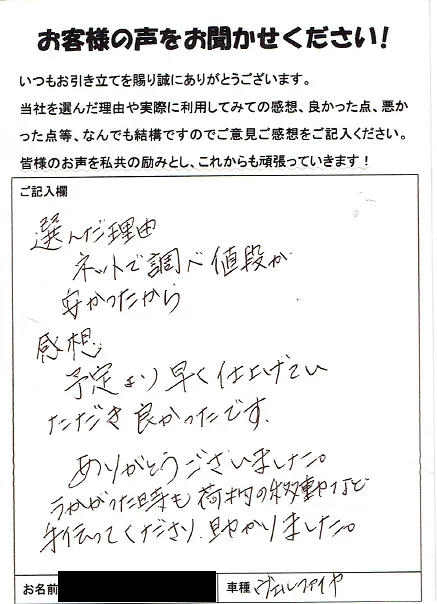 お客様の声をお聞かせください!
いつもお引き立てを賜り誠にありがとうございます。
当社を選んだ理由や実際に利用してみての感想、良かった点、悪か
った点等、なんでも結構ですのでご意見ご感想をご記入ください。
皆様のお声を私共の励みとし、これからも頑張っていきます!
ご記入欄
選んだ理由
ネットで調べ値段が
安かったから
感想
予定より早く仕上げてい
ただき良かったです。
ありがとうございました。
うかがった時も荷物の移動など
手伝ってくださり、助かりました。
お名前
車種 ヴェルファイヤ